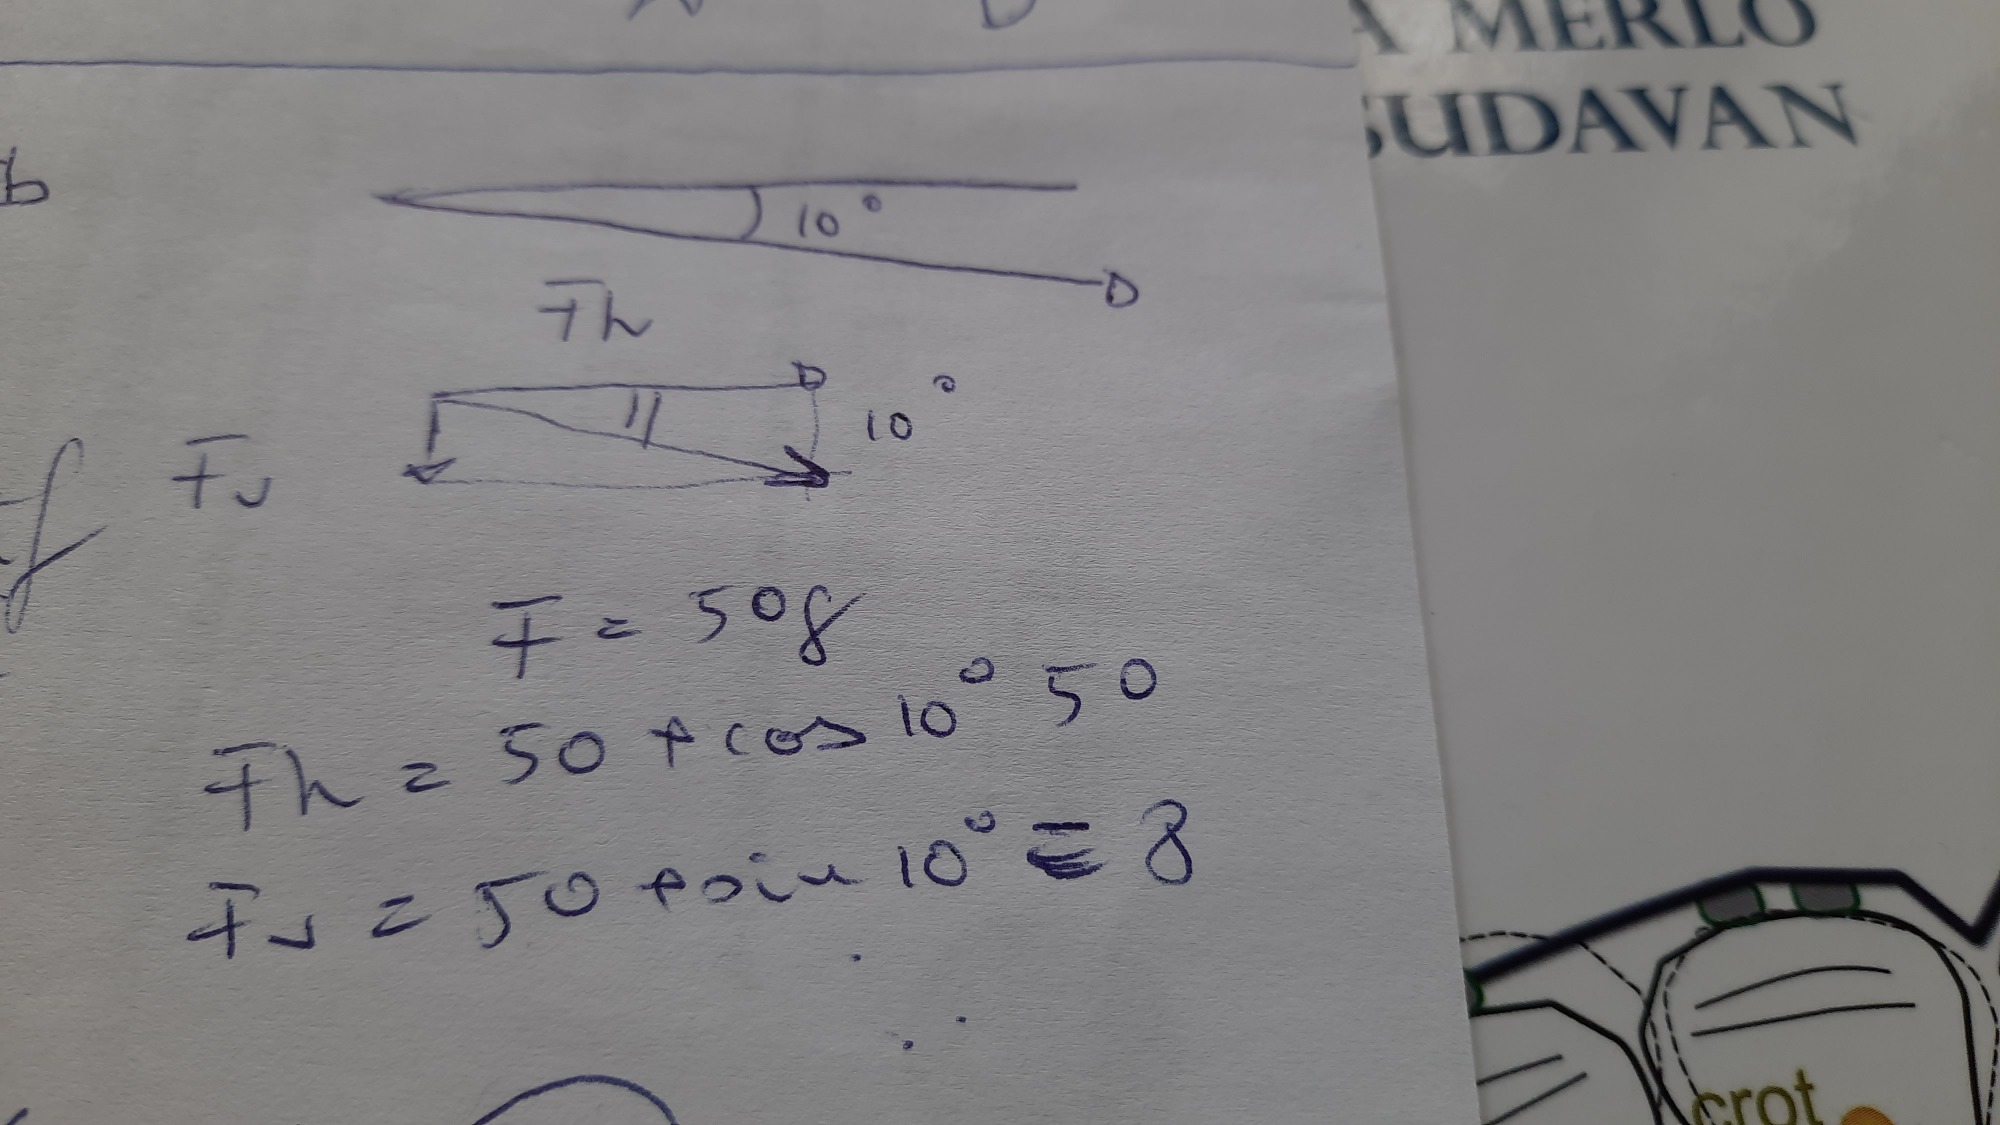 A MERLO
SUDAVAN
b
10°
Fh
10°
Fv
F = 50g
Fh = 50 * cos 10° 50
Fv = 50 * sin 10° = 8
crot